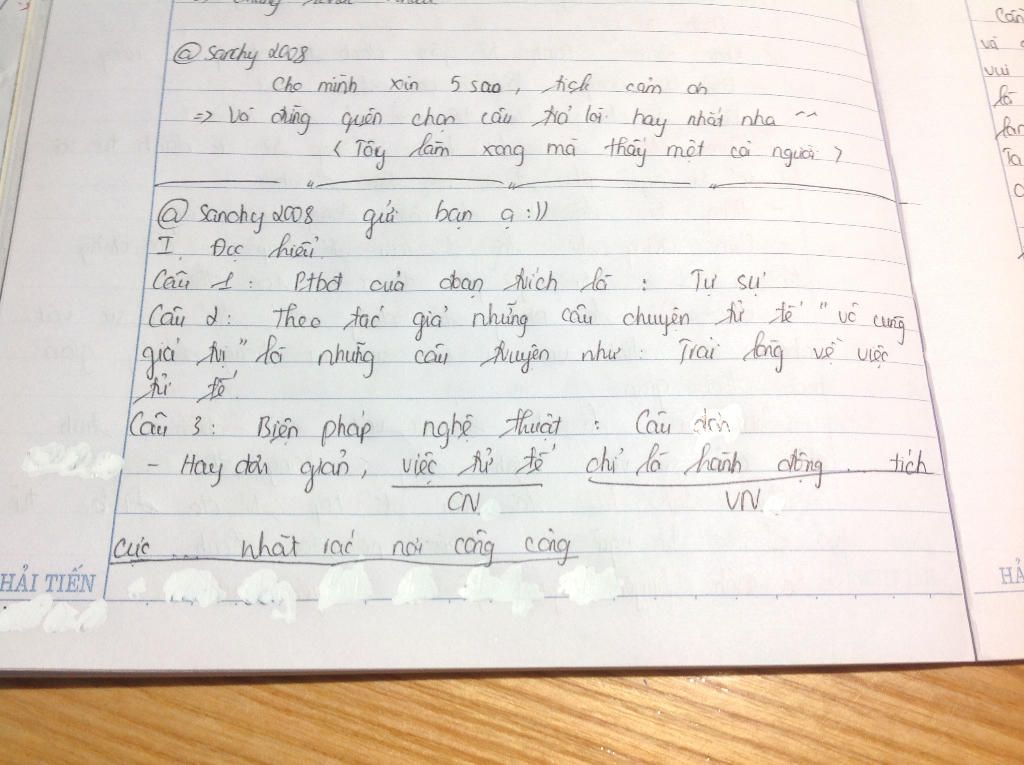 @ Sanchy 2008
Cho mình xin 5 sao, tick cảm ơn
=> Và đừng quên chọn câu trả lời hay nhất nha ~~
< Tây làm xong mà thấy mệt cả người >
@ Sanchy 2008 gửi bạn ạ :))
I. Đọc hiểu
Câu 1 : Ptbđ của đoạn trích là : Tự sự
Câu 2 : Theo tác giả những câu chuyện tử tế "vô cùng
giá trị" là những câu truyện như : Trải lòng về việc
tử tế
Câu 3 : Biện pháp nghệ thuật : Câu đơn
- Hay đơn giản, việc tử tế chỉ là hành động ... tích
CN VN
cực ... nhặt rác nơi công cộng
HẢI TIẾN